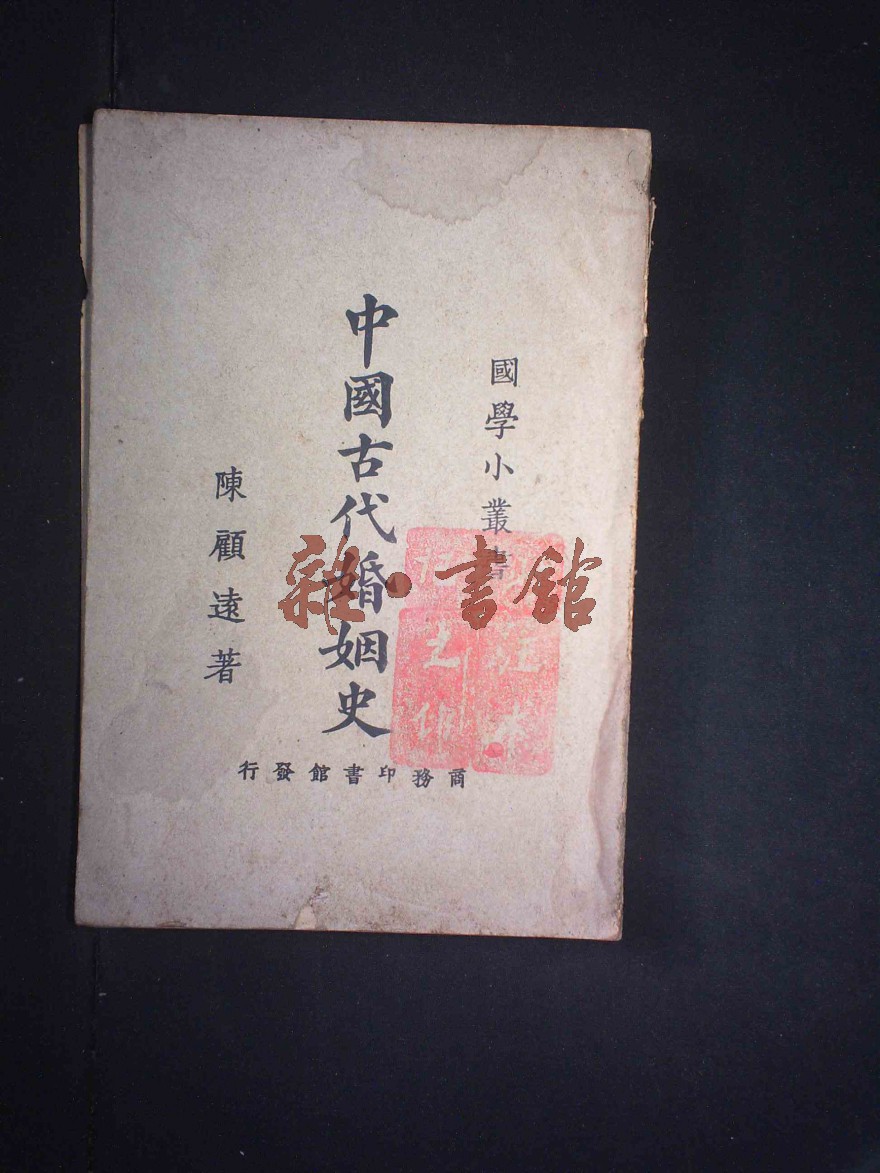 國學小叢書
中國古代婚姻史
陳顧遠著
商務印書館發行
雜·書館